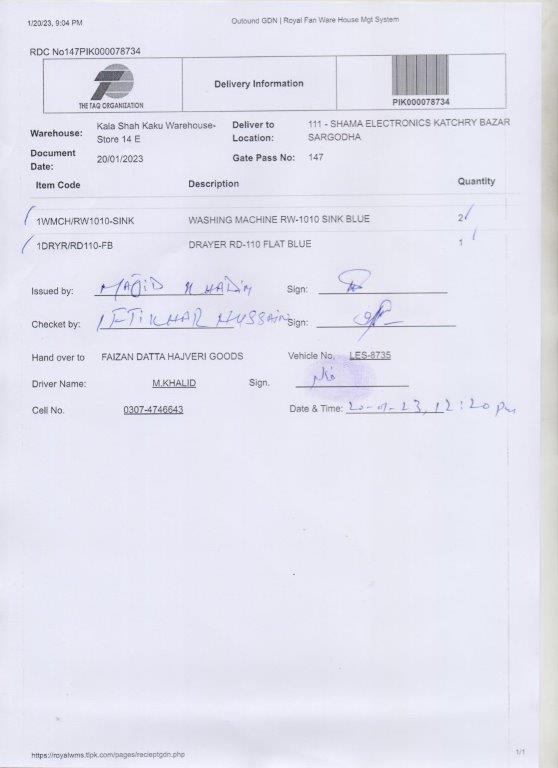 1/20/23, 9:04 PM Outound GDN | Royal Fan Ware House Mgt System
RDC No147PIK000078734
THE TAQ ORGANIZATION
Delivery Information
PIK000078734
Warehouse: Kala Shah Kaku Warehouse-Store 14 E
Deliver to Location: 111 - SHAMA ELECTRONICS KATCHRY BAZAR SARGODHA
Document Date: 20/01/2023 Gate Pass No: 147
Item Code Description Quantity
1WMCH/RW1010-SINK WASHING MACHINE RW-1010 SINK BLUE 2
1DRYR/RD110-FB DRAYER RD-110 FLAT BLUE 1
Issued by: MAJID KHADIM Sign:
Checket by: IFTIKHAR HUSSAIN Sign:
Hand over to FAIZAN DATTA HAJVERI GOODS Vehicle No. LES-8735
Driver Name: M.KHALID Sign.
Cell No. 0307-4746643 Date & Time: 20-01-23, 12:20 pm
https://royalwms.tlpk.com/pages/recieptgdn.php 1/1